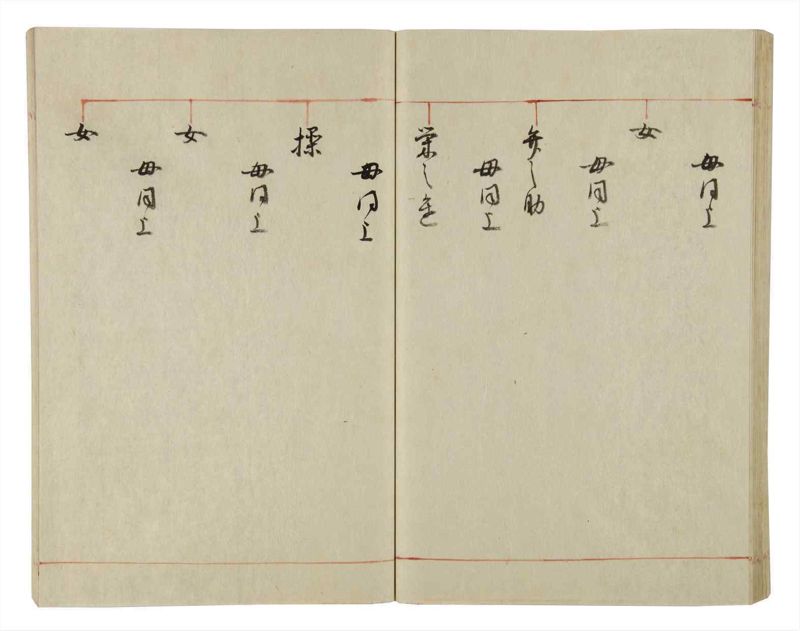 母同上
女
母同上
弁之助
母同上
栄之進
母同上
操
母同上
女
母同上
女